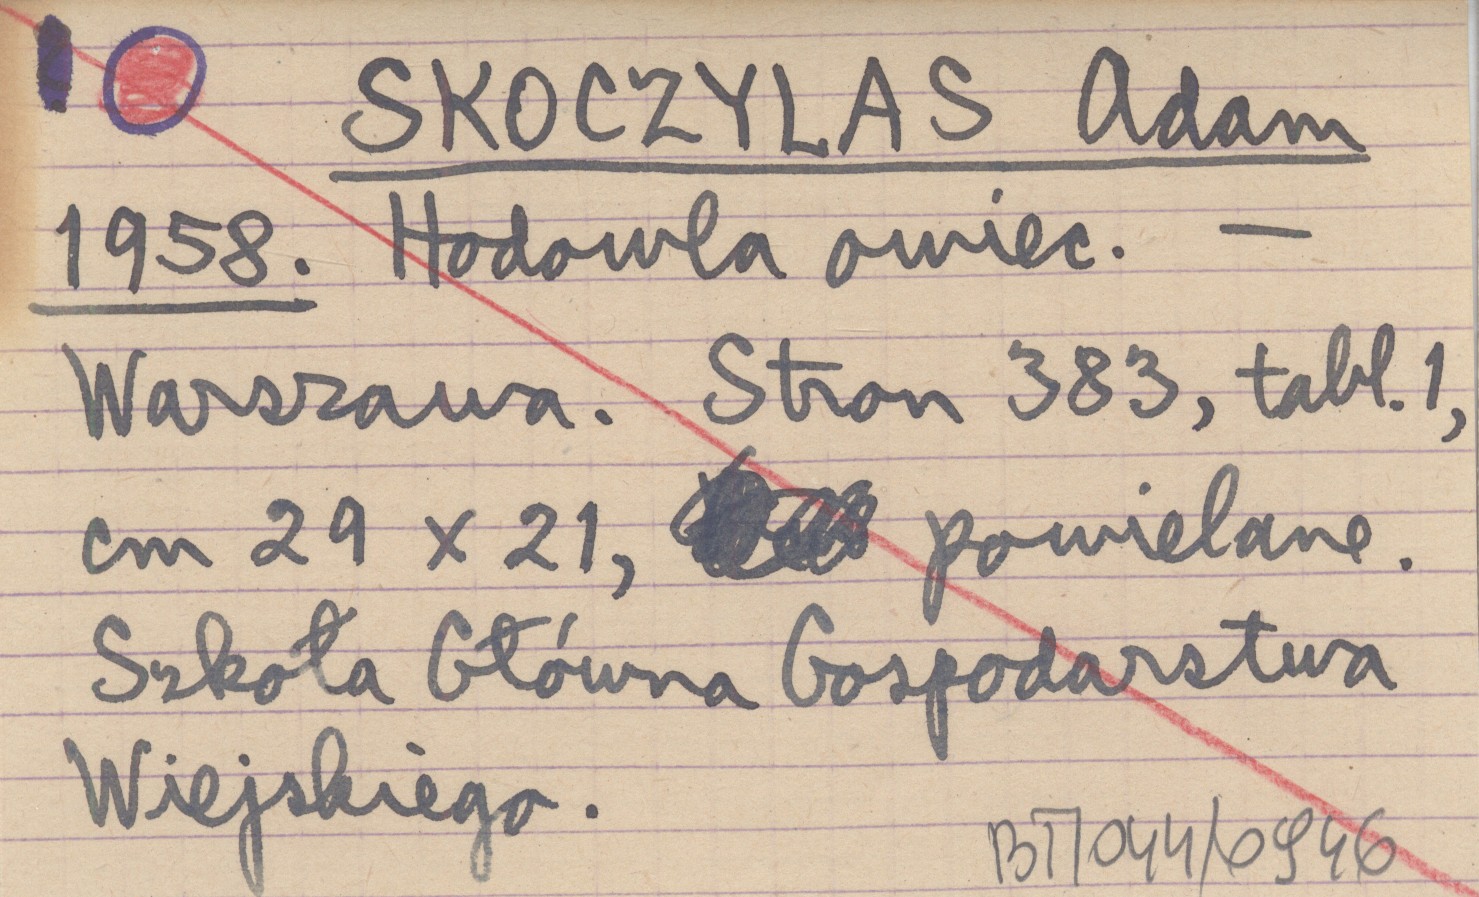 SKOCZYLAS Adam
1958. Hodowla owiec. —
Warszawa. Stron 383, tabl. 1,
cm 29 x 21, powielane.
Szkoła Główna Gospodarstwa
Wiejskiego.
BT/044/0946